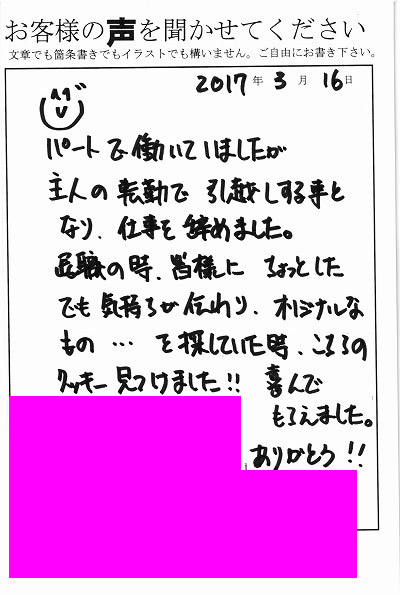 お客様の声を聞かせてください
文章でも箇条書きでもイラストでも構いません。ご自由にお書き下さい。
2017年 3月 16日
パートで働いていましたが
主人の転勤で引越しする事と
なり、仕事を辞めました。
退職の時、皆様に ちょっとした
でも気持ちが伝わり、オリジナルな
もの … を探していた時、こころの
クッキー見つけました!! 喜んで
もらえました。
ありがとう!!